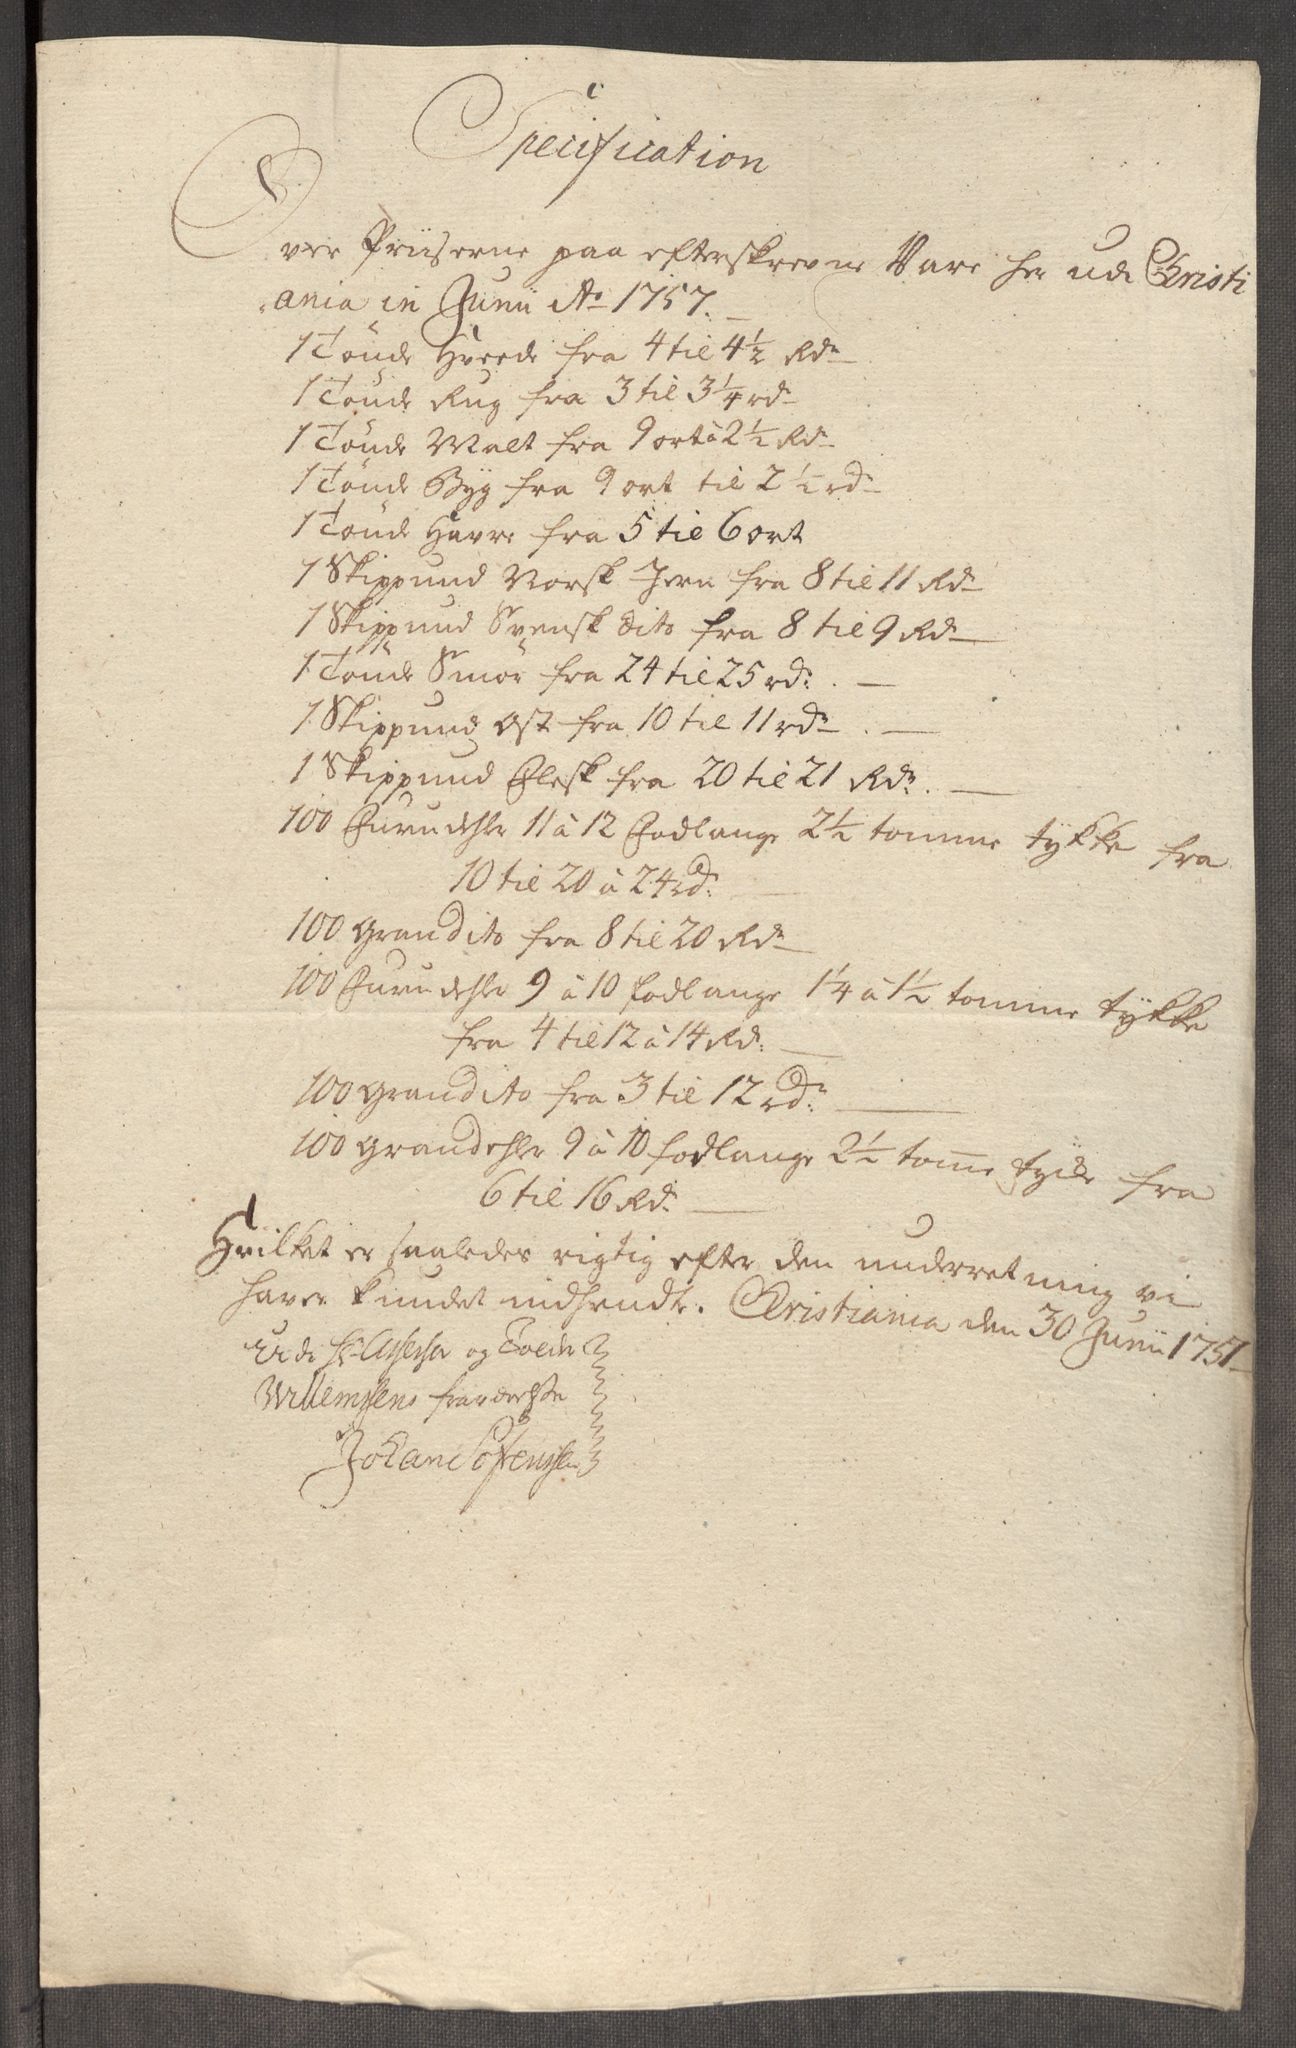 Specification
Over Priiserne paa efterskrevne Vare her udi Christi
ania in Junii Ao 1757.
1 Tönde Hvede fra 4 til 4½ Rdr
1 Tönde Rug fra 3 til 3¼ rdr
1 Tönde Malt fra 9 ort à 2½ Rdr
1 Tönde Byg fra 9 ort til 2½ rdr
1 Tönde Havre fra 5 til 6 ort
1 Skippund Norsk Jern fra 8 til 11 Rdr
1 Skippund Svensk dito fra 8 til 9 Rdr
1 Tönde Smör fra 24 til 25 rdr.
1 Skippund Ost fra 10 til 11 rdr.
1 Skippund Flesk fra 20 til 21 Rdr.
100 Furudehle 11 à 12 Fodlange 2½ tomme tykke fra
10 til 20 à 24 rdr.
100 Gran dito fra 8 til 20 Rdr
100 Furudehle 9 à 10 fodlange 1¼ à 1½ tomme tykke
fra 4 til 12 à 14 Rdr.
100 Gran dito fra 3 til 12 rdr.
100 Grandehle 9 à 10 fodlange 2½ tom̅e tycke fra
6 til 16 Rdr.
Hvilket er saaledes rigtig efter den underretning vi
haver kundet indhendte. Christiania den 30 Junii 1757
Udi Hr Assessor og Tolder
Willemsens fraværelse
Johan Sörenssen